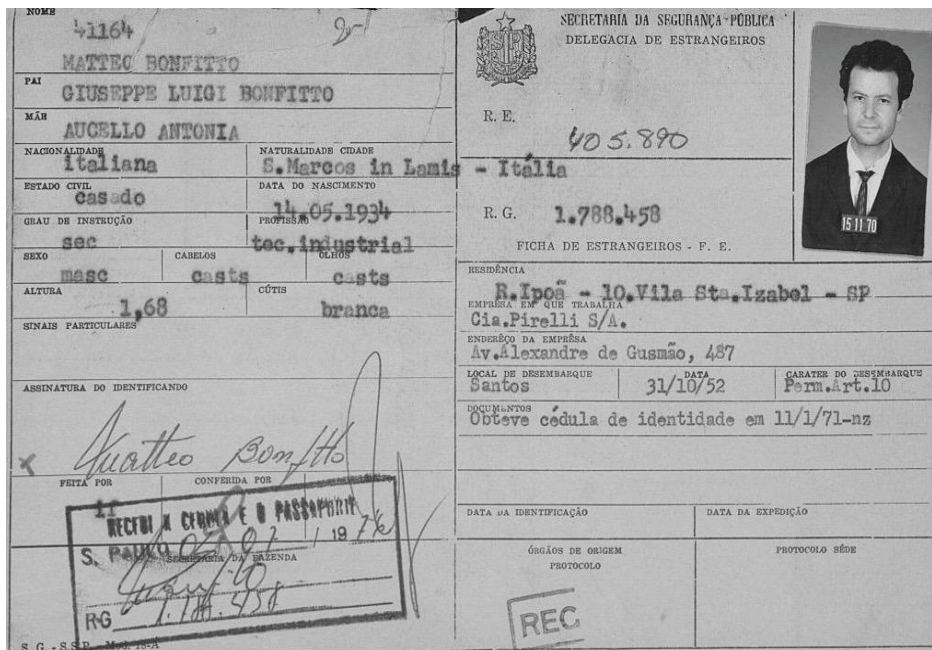 NOME
41164
MATTEO BONFITTO
PAI
GIUSEPPE LUIGI BONFITTO
MÃE
AUCELLO ANTONIA
NACIONALIDADE
italiana
NATURALIDADE CIDADE
S.Marcos in Lamis - Itália
ESTADO CIVIL
casado
DATA DO NASCIMENTO
14.05.1934
GRAU DE INSTRUÇÃO
sec
PROFISSÃO
tec.industrial
SEXO
masc
CABELOS
casts
OLHOS
casts
ALTURA
1,68
CÚTIS
branca
SINAIS PARTICULARES
ASSINATURA DO IDENTIFICANDO
Matteo Bonfitto
FEITA POR
CONFERIDA POR
RECEBI A CEDULA E O PASSAPORTE
S. PAULO 1976
SECRETARIA DA FAZENDA
RG 1.788.458
S. G. - S.S.P. - Mod. 18-A
SECRETARIA DA SEGURANÇA PÚBLICA
DELEGACIA DE ESTRANGEIROS
R. E.
405.890
R. G. 1.788.458
15 11 70
FICHA DE ESTRANGEIROS - F. E.
RESIDÊNCIA
R.Ipoã - 10.Vila Sta.Izabel - SP
EMPRÊSA EM QUE TRABALHA
Cia.Pirelli S/A.
ENDERÊÇO DA EMPRÊSA
Av.Alexandre de Gusmão, 487
LOCAL DE DESEMBARQUE
Santos
DATA
31/10/52
CARATER DO DESEMBARQUE
Perm.Art.10
DOCUMENTOS
Obteve cédula de identidade em 11/1/71-nz
DATA DA IDENTIFICAÇÃO
DATA DA EXPEDIÇÃO
ÓRGÃOS DE ORIGEM
PROTOCOLO
PROTOCOLO SÉDE
REC